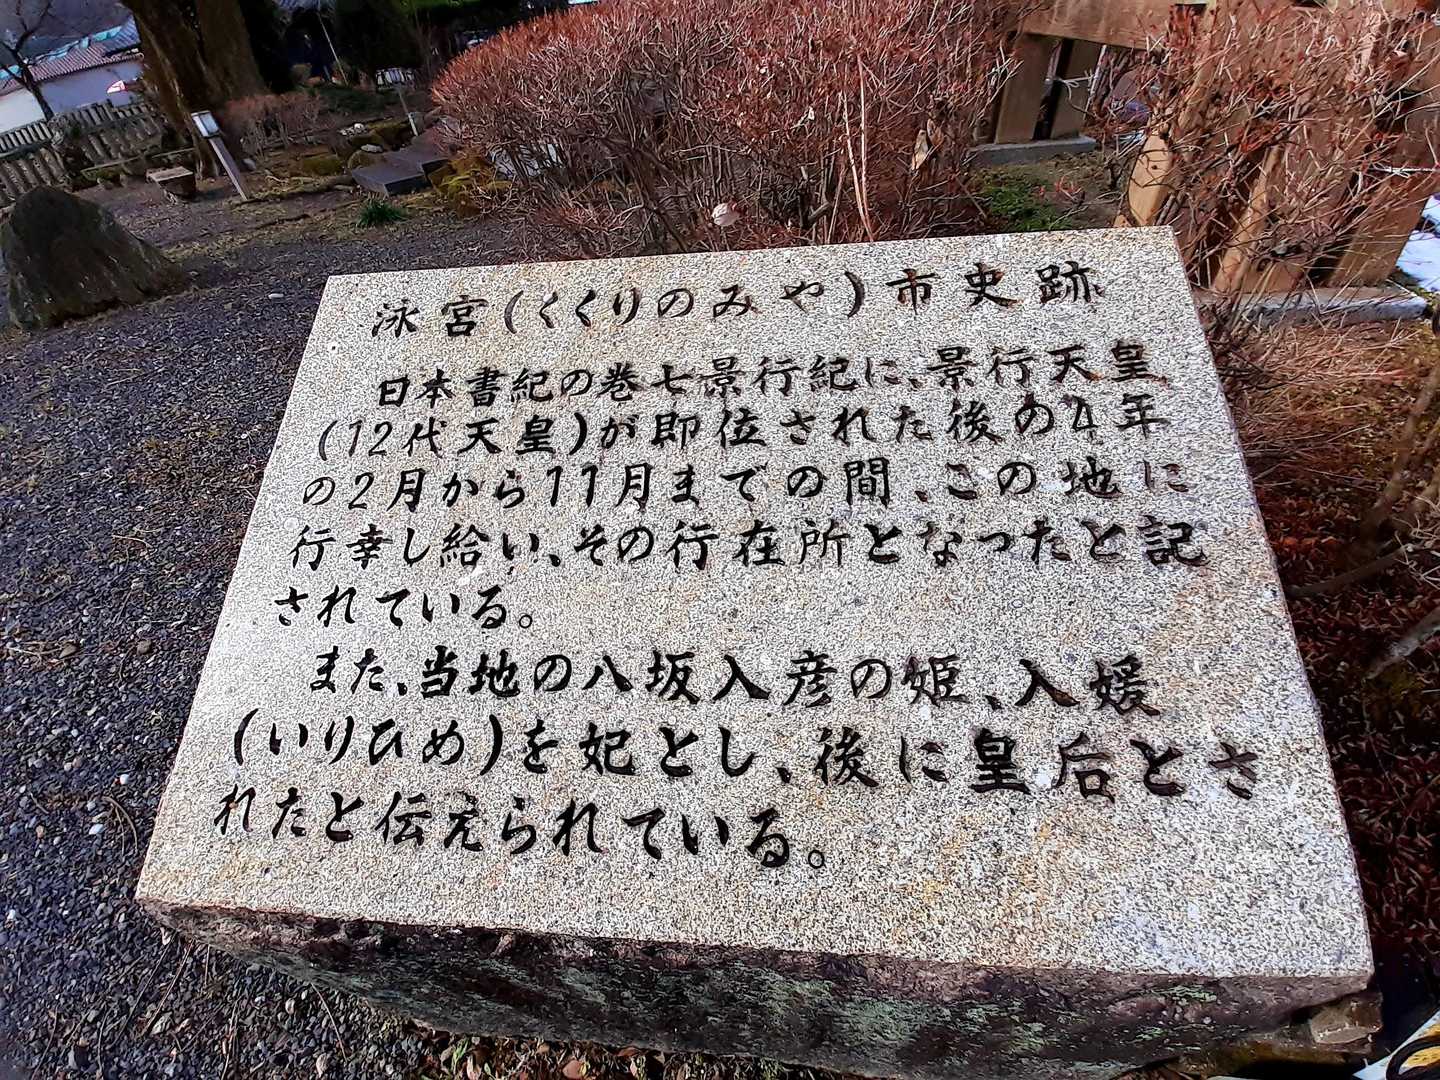 泳宮(くくりのみや)市史跡
日本書紀の巻七景行紀に、景行天皇
(12代天皇)が即位された後の4年
の2月から11月までの間、この地に
行幸し給い、その行在所となったと記
されている。
また、当地の八坂入彦の姫、入媛
(いりひめ)を妃とし、後に皇后とさ
れたと伝えられている。